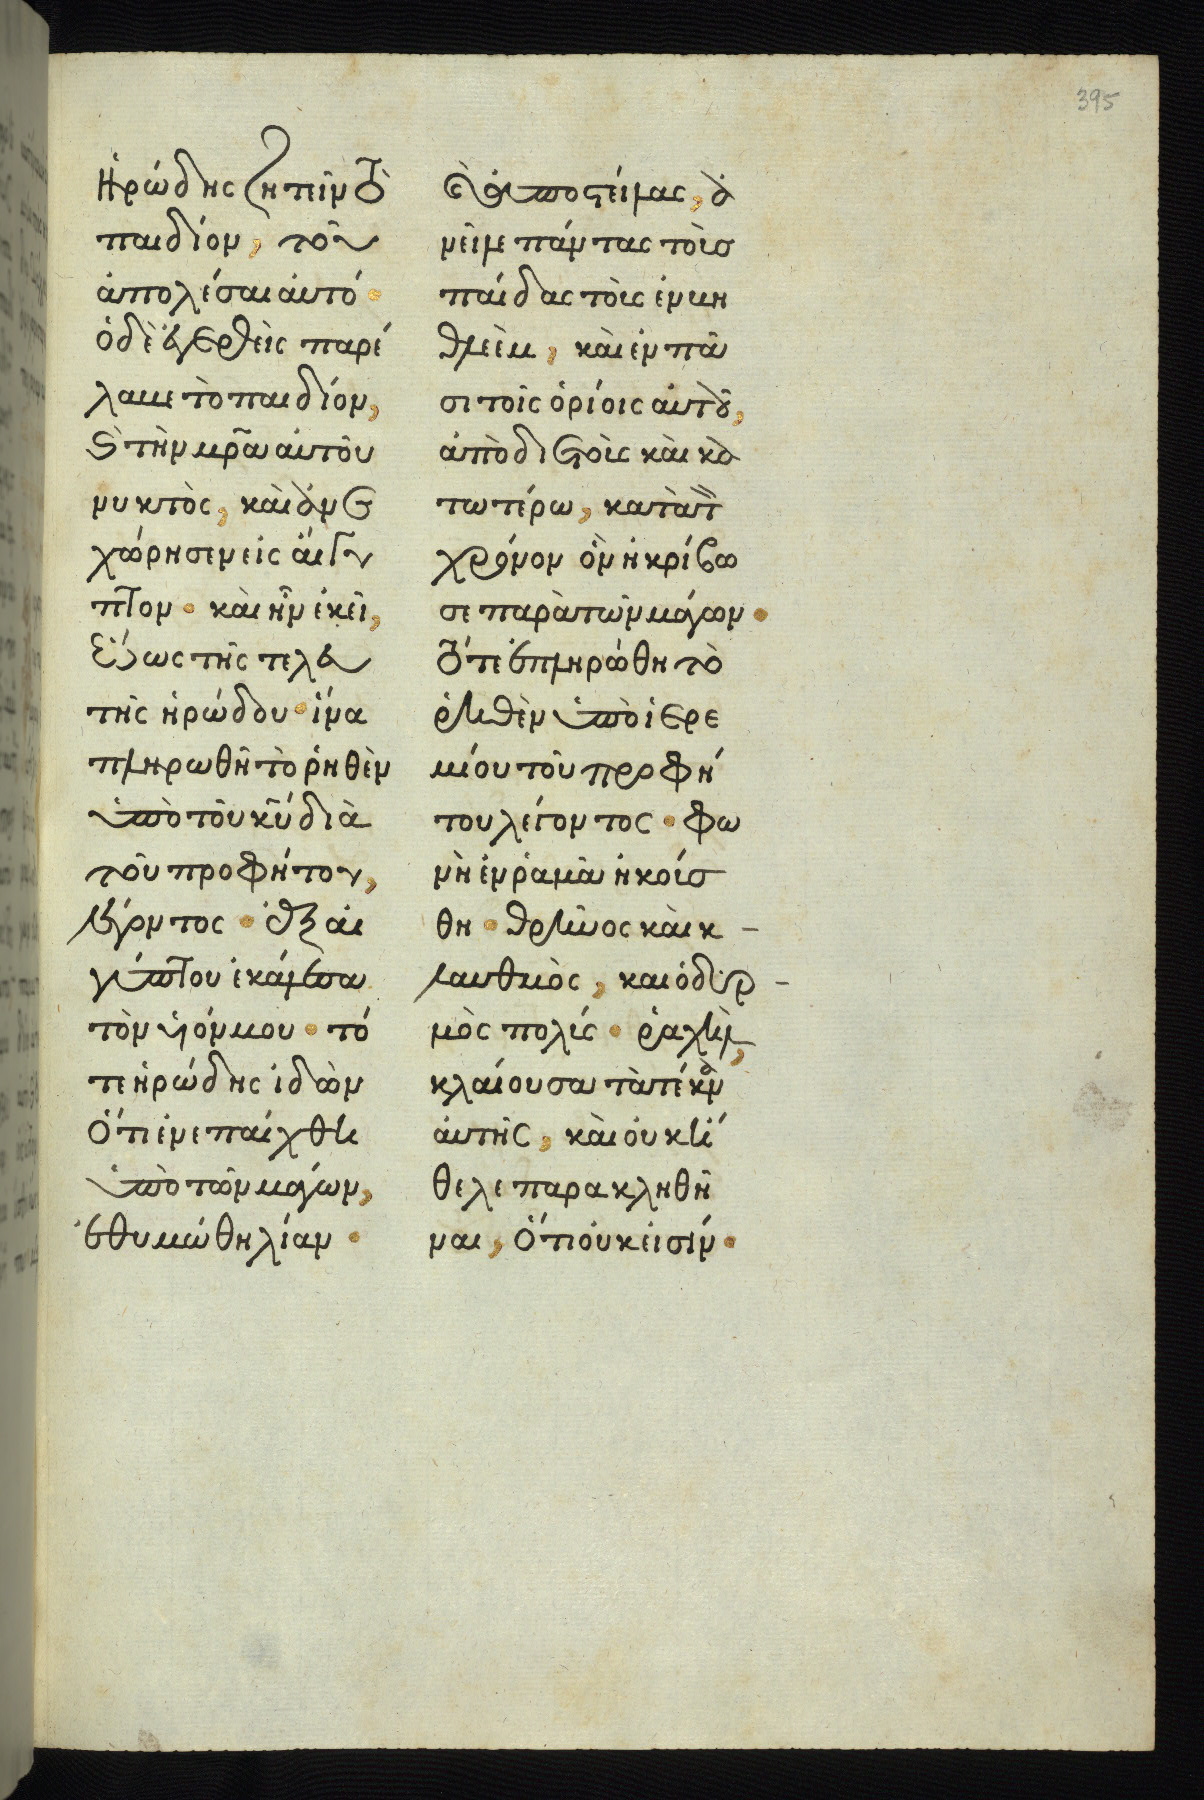 395
Ἡρώδης ζητεῖν τὸ
παιδίον, τοῦ
ἀπολέσαι αὐτό·
ὁ δὲ ἐγερθεὶς παρέ
λαβε τὸ παιδίον,
καὶ τὴν μρ̃α αὐτοῦ
νυκτὸς, καὶ ἀνε
χώρησεν εἰς αἴγυ
πτον· καὶ ἦν ἐκεῖ,
ἕως τῆς τελευ
τῆς ἡρώδου· ἵνα
πληρωθῆ τὸ ῥηθὲν
ὑπὸ τοῦ κῦ διὰ
τοῦ προφήτου,
λέγοντος· ἐξ αἰ
γύπτου ἐκάλεσα
τὸν υἱόν μου· τό
τε ἡρώδης ἰδὼν
ὅτι ἐνεπαίχθη
ὑπὸ τῶν μάγων,
ἐθυμώθη λίαν·
καὶ ἀποστείλας, ἀ
νεῖλε πάντας τοὺς
παῖδας τοὺς ἐν βη
θλεὲμ, καὶ ἐν πᾶ
σι τοῖς ὁρίοις αὐτοῦ,
ἀπὸ διετοῦς καὶ κα
τωτέρω, κατὰ τὸν
χρόνον ὃν ἠκρίβω
σε παρὰ τῶν μάγων·
τότε ἐπληρώθη τὸ
ῥηθὲν ὑπὸ ἱερε
μίου τοῦ προφή
του λέγοντος· φω
νὴ ἐν ῥαμᾶ ἠκούσ
θη· θρῆνος καὶ κ-
λαυθμὸς, καὶ ὀδυρ-
μὸς πολύς· ῥαχὴλ,
κλαίουσα τὰ τέκνα
αὐτῆς, καὶ οὐκ ἤ
θελε παρακληθῆ
ναι, ὅτι οὐκ εἰσίν·